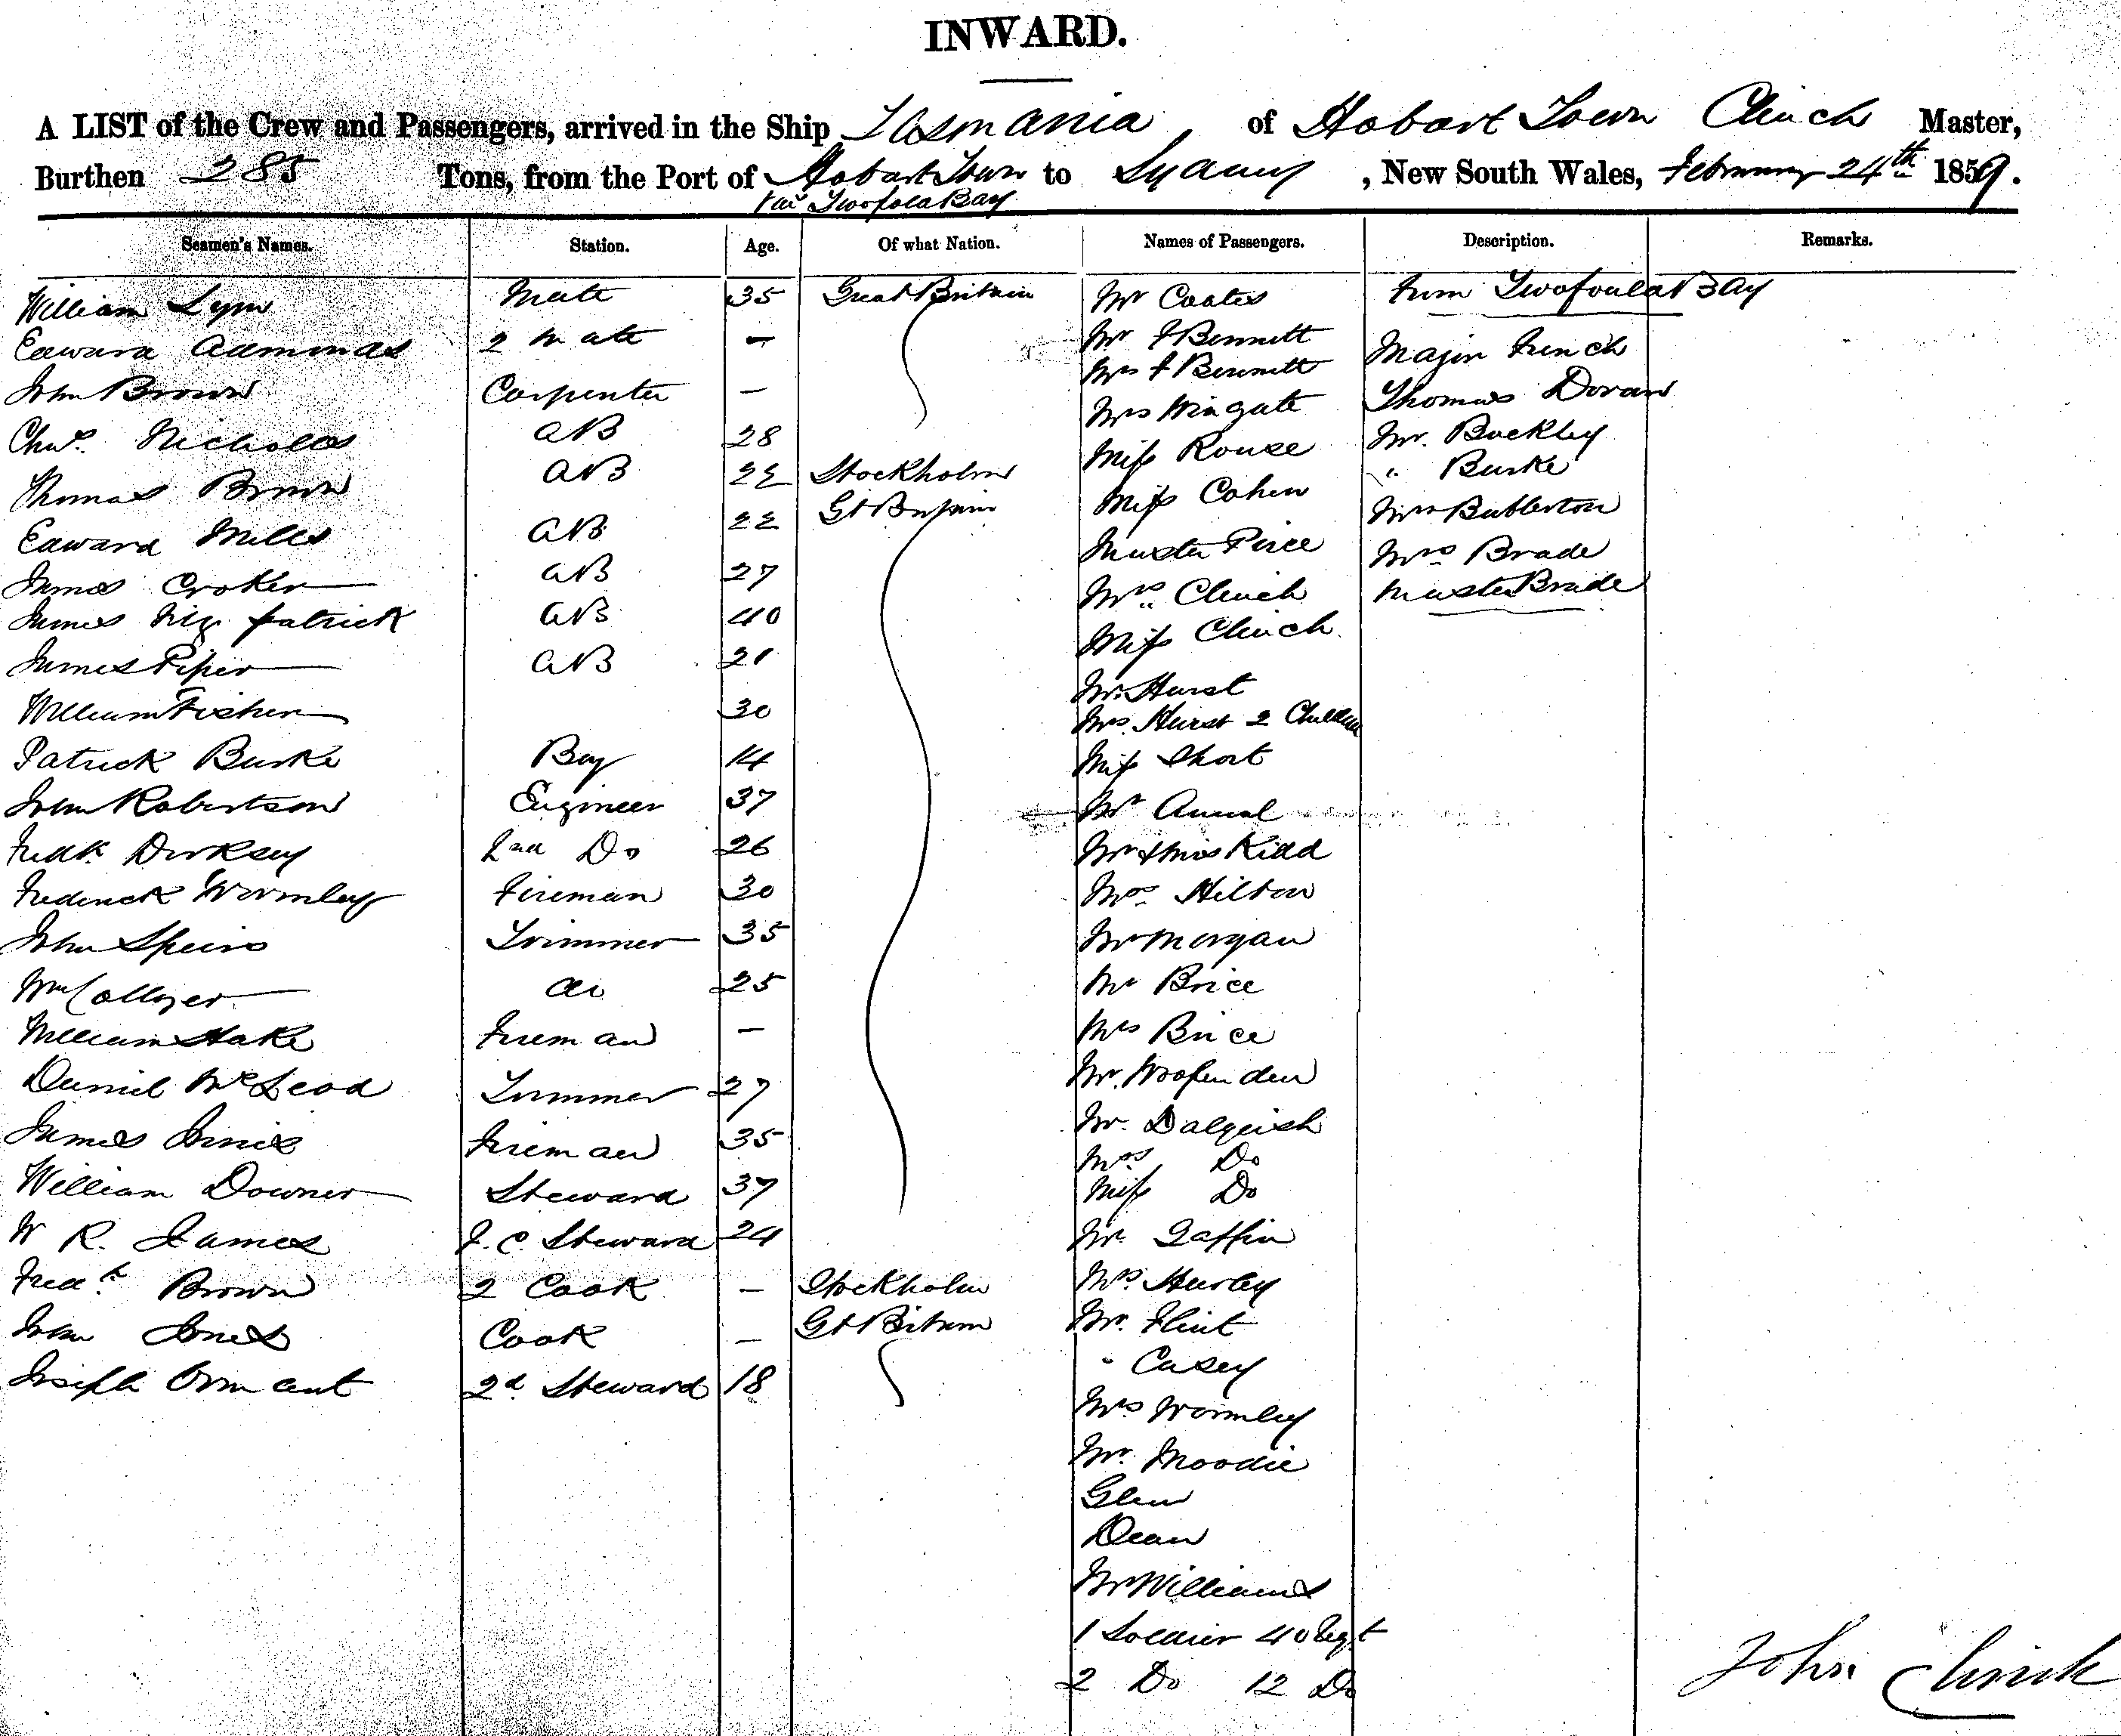 INWARD.
A LIST of the Crew and Passengers, arrived in the Ship Tasmania, of Hobart Town Clinch Master,
Burthen 285 Tons, from the Port of Hobart Town to Sydney, New South Wales, February 24th 1859.
via Twofold Bay
Seamen's Names. Station. Age. Of what Nation. Names of Passengers. Description. Remarks.
William Lynn Mate 35 Great Britain Mr Coates from Twofould Bay
Edward Admonds 2 Mate — Mr J Bennett Major French
Mrs J Bennett
John Brown Carpenter — Mrs Wingate Thomas Doran
Chas. Nicholls AB 28 Miss Rouse Mr. Buckley
Thomas Brown AB 22 Stockholm Miss Cohen " Burke
Edward Mills AB 22 Gt Britain Master Pirce Mrs Bubberton
James Croker AB 27 Mrs. Clinch Mrs Brade
James Fitzpatrick AB 40 Miss Clinch Master Brade
James Piper AB 21 Mr. Hurst
William Fisher 30 Mrs. Hurst 2 Children
Patrick Burke Boy 14 Miss Short
John Robertson Engineer 37 Mr
Fredk. Dirksey 2nd Do 26 Mr & Mrs Kidd
Frederick Wormley Fireman 30 Mrs. Hilton
John Speirs Trimmer 35 Mr Morgan
Wm Collyer do 25 Mr Brice
William Hake Fireman — Mrs Brice
Daniel McLeod Trimmer 27 Mr. Woofenden
James Innis Fireman 35 Mr. Dalgeish
Mrs. Do
William Downer Steward 37 Miss Do
W R. James F.C. Steward 24 Mr. Gaffin
Fredk. Brown 2 Cook — Stockholm Mrs. Hurley
John Jones Cook — Gt Britain Mr. Flint
" Casey
Joseph Ormant 2d Steward 18 Mrs Wormley
Mr. Moodie
Glen
Dean
Mr Williams
1 Soldier 40 Regt
2 Do 12 Do
John Clinch